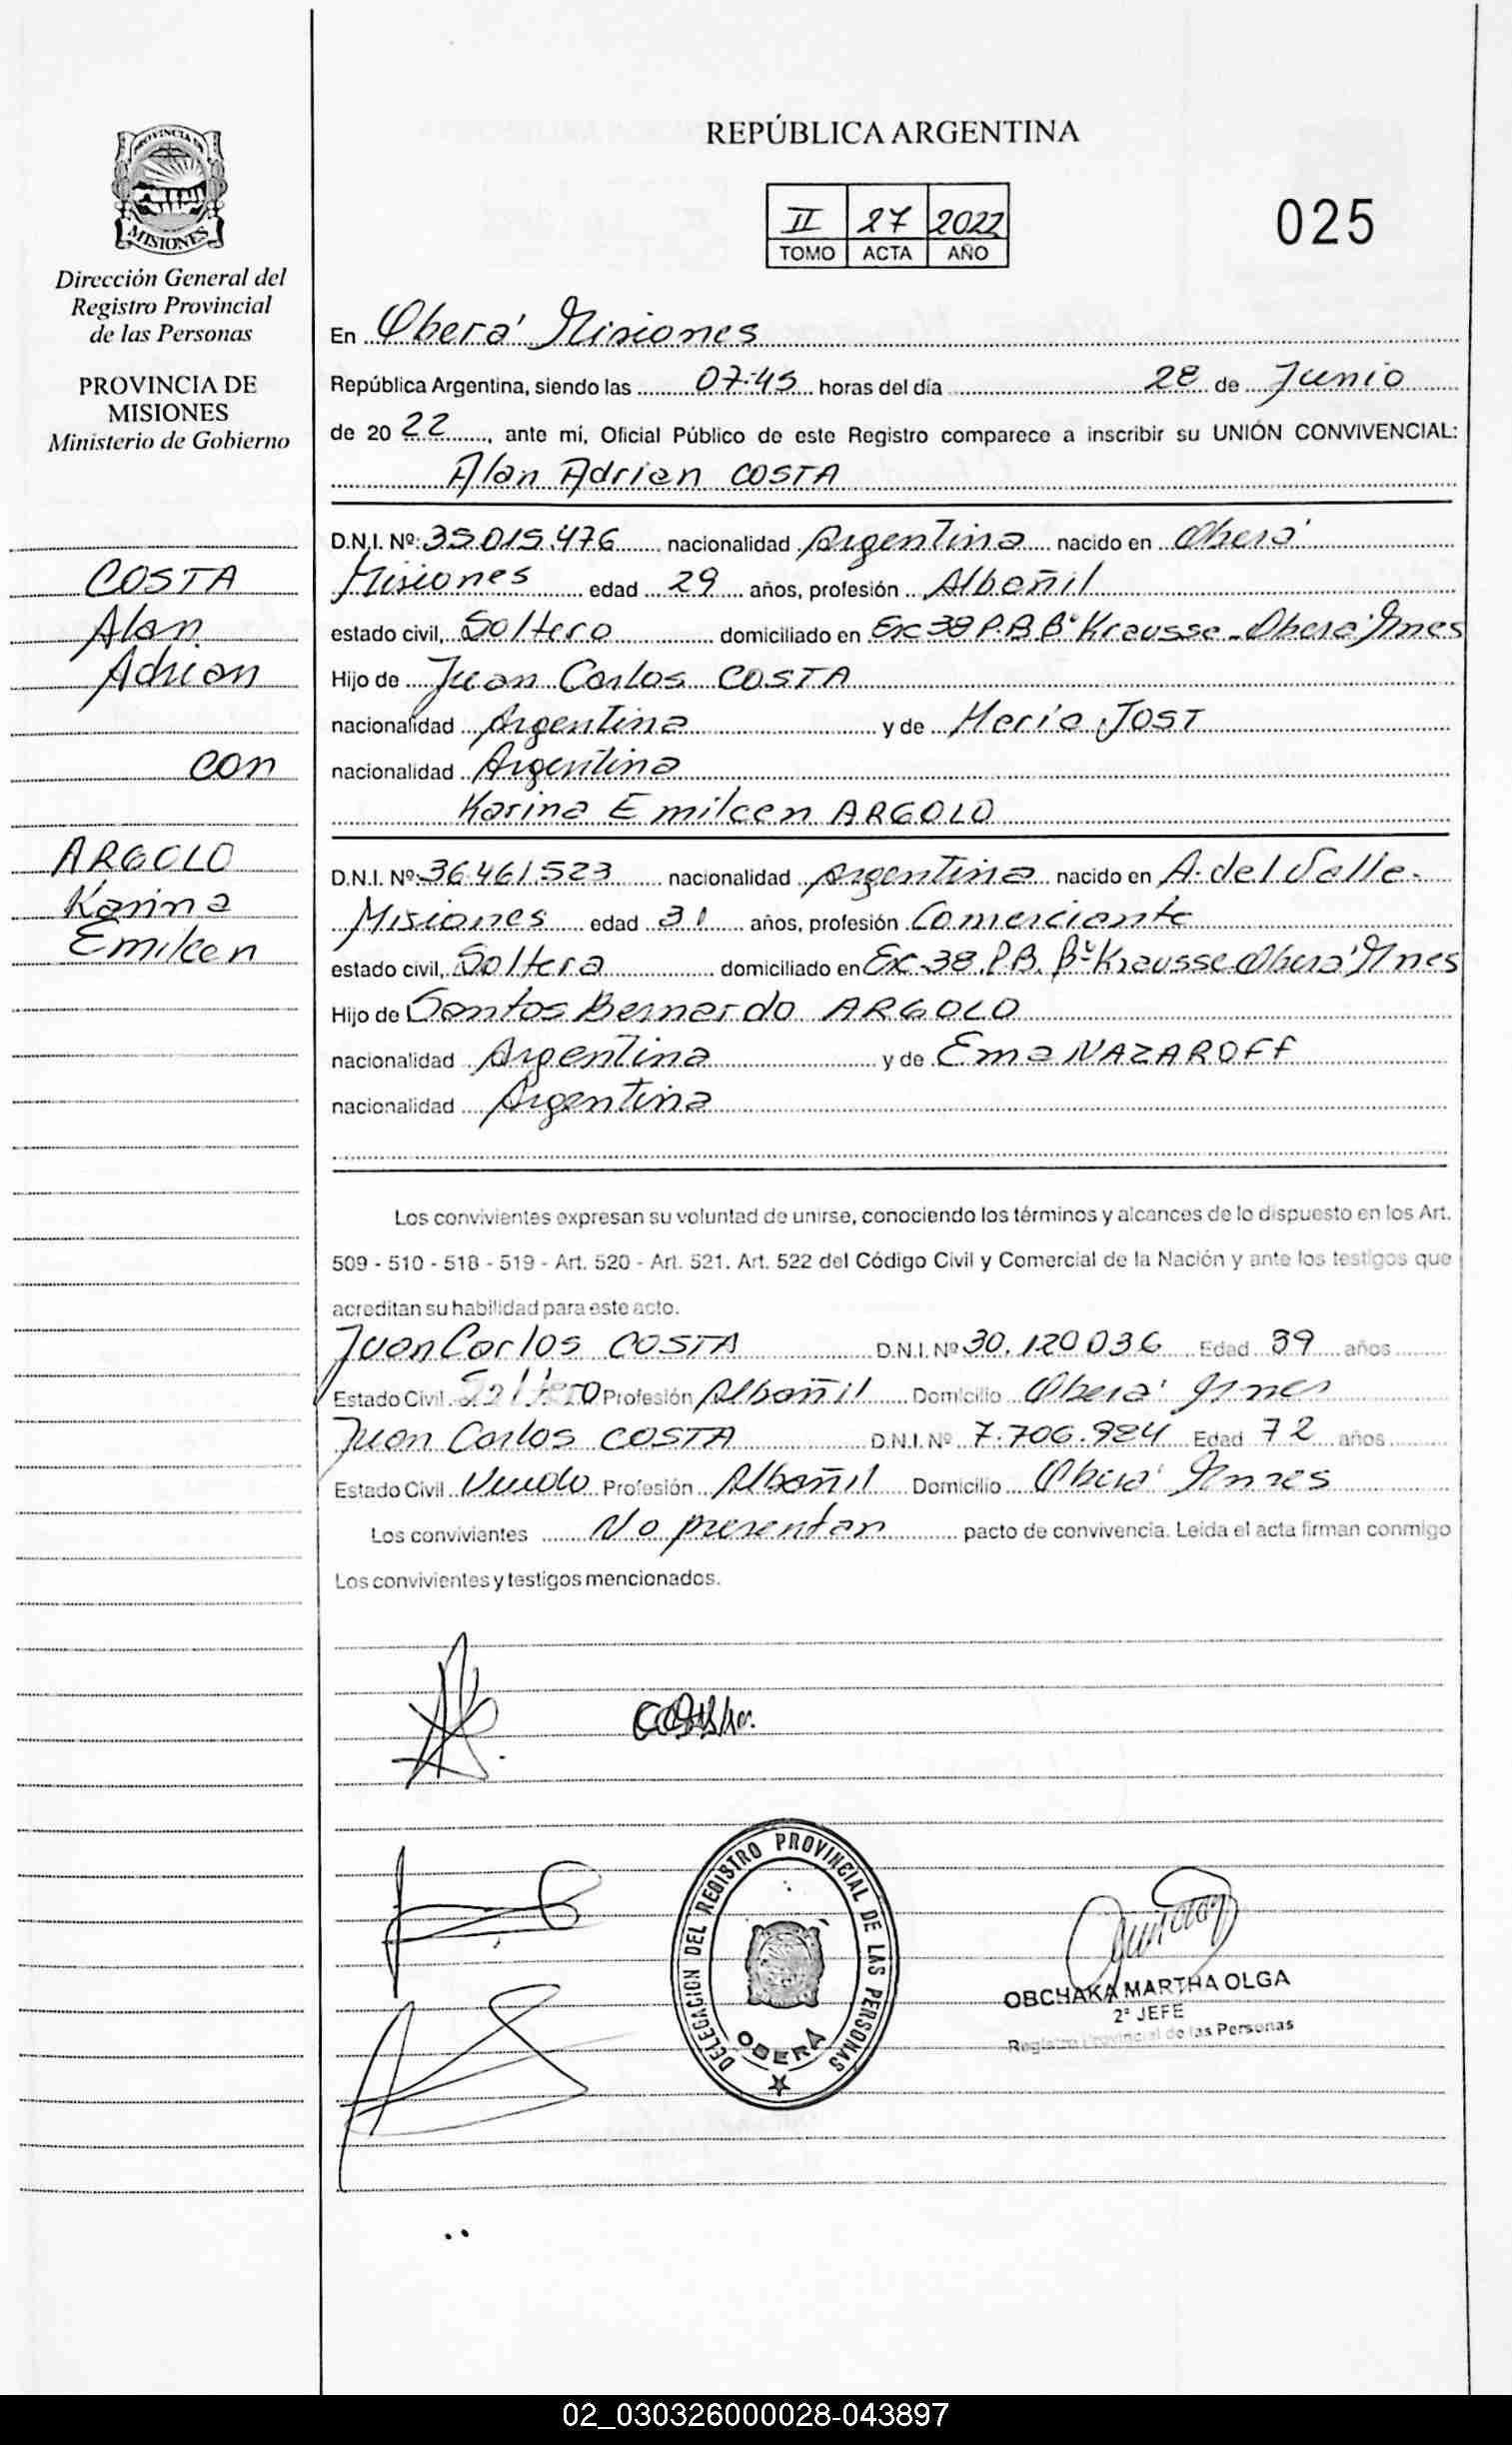 REPÚBLICA ARGENTINA
PROVINCIA DE
MISIONES
II 27 2022
TOMO ACTA AÑO
025
Dirección General del
Registro Provincial
de las Personas
PROVINCIA DE
MISIONES
Ministerio de Gobierno
COSTA
Alan
Adrian
con
ARGOLO
Karina
Emilcen
En Oberá Misiones
República Argentina, siendo las 07:45 horas del día 28 de Junio
de 20 22, ante mí, Oficial Público de este Registro comparece a inscribir su UNIÓN CONVIVENCIAL:
Alan Adrian COSTA
D.N.I. Nº: 35.015.476 nacionalidad Argentina nacido en Oberá
Misiones edad 29 años, profesión Albañil
estado civil, Soltero domiciliado en Ex 38 P.B B° Krausse - Oberá Mnes
Hijo de Juan Carlos COSTA
nacionalidad Argentina y de María JOST
nacionalidad Argentina
Karina Emilcen ARGOLO
D.N.I. Nº: 36.461.523 nacionalidad Argentina nacido en A. del Valle.
Misiones edad 31 años, profesión Comerciante
estado civil, Soltera domiciliado en Ex-38 P.B. B° Krausse Oberá Mnes
Hijo de Santos Bernardo ARGOLO
nacionalidad Argentina y de Ema NAZAROFF
nacionalidad Argentina
Los convivientes expresan su voluntad de unirse, conociendo los términos y alcances de lo dispuesto en los Art.
509 - 510 - 518 - 519 - Art. 520 - Art. 521. Art. 522 del Código Civil y Comercial de la Nación y ante los testigos que
acreditan su habilidad para este acto.
Juan Carlos COSTA D.N.I. Nº 30.120.036 Edad 39 años
Estado Civil Soltero Profesión Albañil Domicilio Oberá Mnes
Juan Carlos COSTA D.N.I. Nº 7.706.984 Edad 72 años
Estado Civil Viudo Profesión Albañil Domicilio Oberá Mnes
Los convivientes No presentan pacto de convivencia. Leída el acta firman conmigo
Los convivientes y testigos mencionados.
DELEGACION DEL REGISTRO PROVINCIAL DE LAS PERSONAS
OBERÁ
OBCHAKA MARTHA OLGA
2º JEFE
Registro Provincial de las Personas
02_030326000028-043897